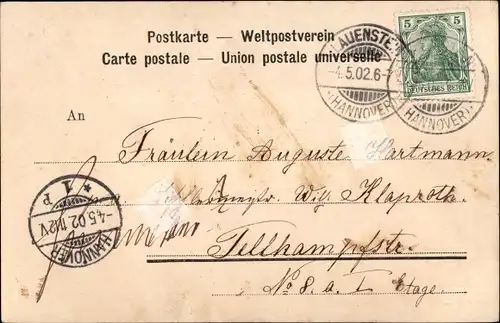 Postkarte — Weltpostverein
Carte postale — Union postale universelle
5 5
DEUTSCHES REICH
LAUENSTEIN
-4.5.02.6-
(HANNOVER)
(HANNOVER)
An
Fräulein Auguste Hartmann
Wilh. Klaproth
Hannover
Tellkampfstr.
No 8. a. I Etage.
HANNOVER
-4.5.02. 11-12V.
* 1 P